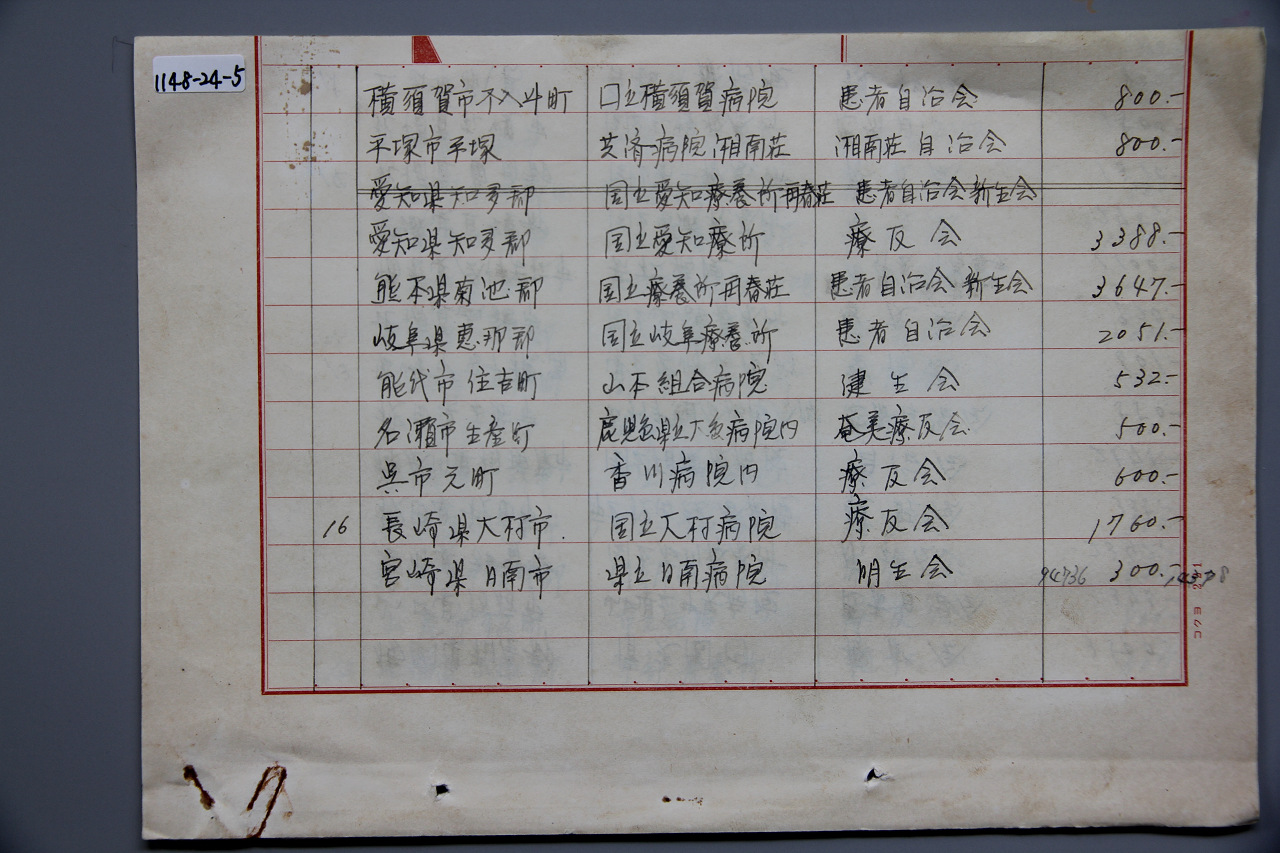 1148-24-5
横須賀市不入斗町 口立横須賀病院 患者自治会 800.-
平塚市平塚 共済病院湘南荘 湘南荘自治会 800.-
愛知県知多郡 国立愛知療養所再春荘 患者自治会新生会
愛知県知多郡 国立愛知療所 療友会 3388.-
熊本県菊池郡 国立療養所再春荘 患者自治会新生会 3647.-
岐阜県恵那郡 国立岐阜療養所 患者自治会 2051.-
能代市住吉町 山本組合病院 健生会 532.-
名瀬市生産町 鹿児島県立大島病院内 奄美療友会 500.-
呉市元町 香川病院内 療友会 600.-
16 長崎県大村市. 国立大村病院 療友会 1760.-
宮崎県日南市 県立日南病院 明生会 94736 300.-
コクヨ